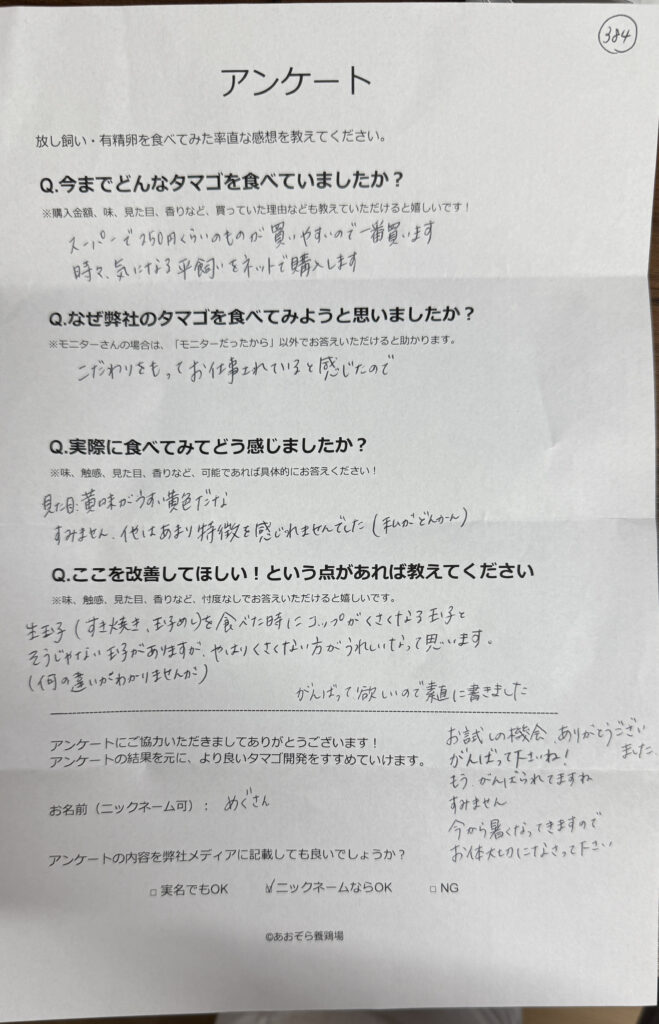 384
アンケート
放し飼い・有精卵を食べてみた率直な感想を教えてください。
Q.今までどんなタマゴを食べていましたか？
※購入金額、味、見た目、香りなど、買っていた理由なども教えていただけると嬉しいです！
スーパーで250円くらいのものが買いやすいので一番買います
時々、気になる平飼いをネットで購入します
Q.なぜ弊社のタマゴを食べてみようと思いましたか？
※モニターさんの場合は、「モニターだったから」以外でお答えいただけると助かります。
こだわりをもってお仕事されていると感じたので
Q.実際に食べてみてどう感じましたか？
※味、触感、見た目、香りなど、可能であれば具体的にお答えください！
見た目：黄味がうすい黄色だな
すみません、他はあまり特徴を感じれませんでした（私がどんかん）
Q.ここを改善してほしい！という点があれば教えてください
※味、触感、見た目、香りなど、忖度なしでお答えいただけると嬉しいです。
生玉子（すき焼き、玉子めし）を食べた時にコップがくさくなる玉子と
そうじゃない玉子がありますが、やはりくさくない方がうれしいなって思います。
（何の違いかわかりませんが）
がんばって欲しいので素直に書きました
アンケートにご協力いただきましてありがとうございます！
アンケートの結果を元に、より良いタマゴ開発をすすめていけます。
お名前（ニックネーム可）： めぐさん
お試しの機会、ありがとうござい
ました
がんばって下さいね！
もう、がんばられてますね
すみません
今から暑くなってきますので
お体大切になさって下さい
アンケートの内容を弊社メディアに記載しても良いでしょうか？
□ 実名でもOK ☑ニックネームならOK □ NG
©あおぞら養鶏場